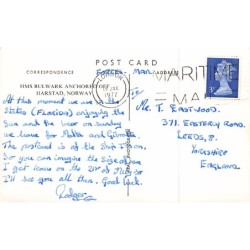 POST CARD
CORRESPONDENCE
FORCES MAIL
ADDRESS
HMS BULWARK ANCHORED OFF
HARSTAD, NORWAY
At this moment we are in the
States (FLORIDA) enjoying the
Sun and the beer on Sunday
we leave for Malta and
The postcard is of the Ship I'm on.
So you can imagine the size of her
I get leave on the 21st of July so
I'll see you all then. Good luck.
Rodger
1977
MARITI
MA
To
Mr. T. EASTWOOD.
371. EASTERLY ROAD.
LEEDS, 8.
YORKSHIRE
ENGLAND